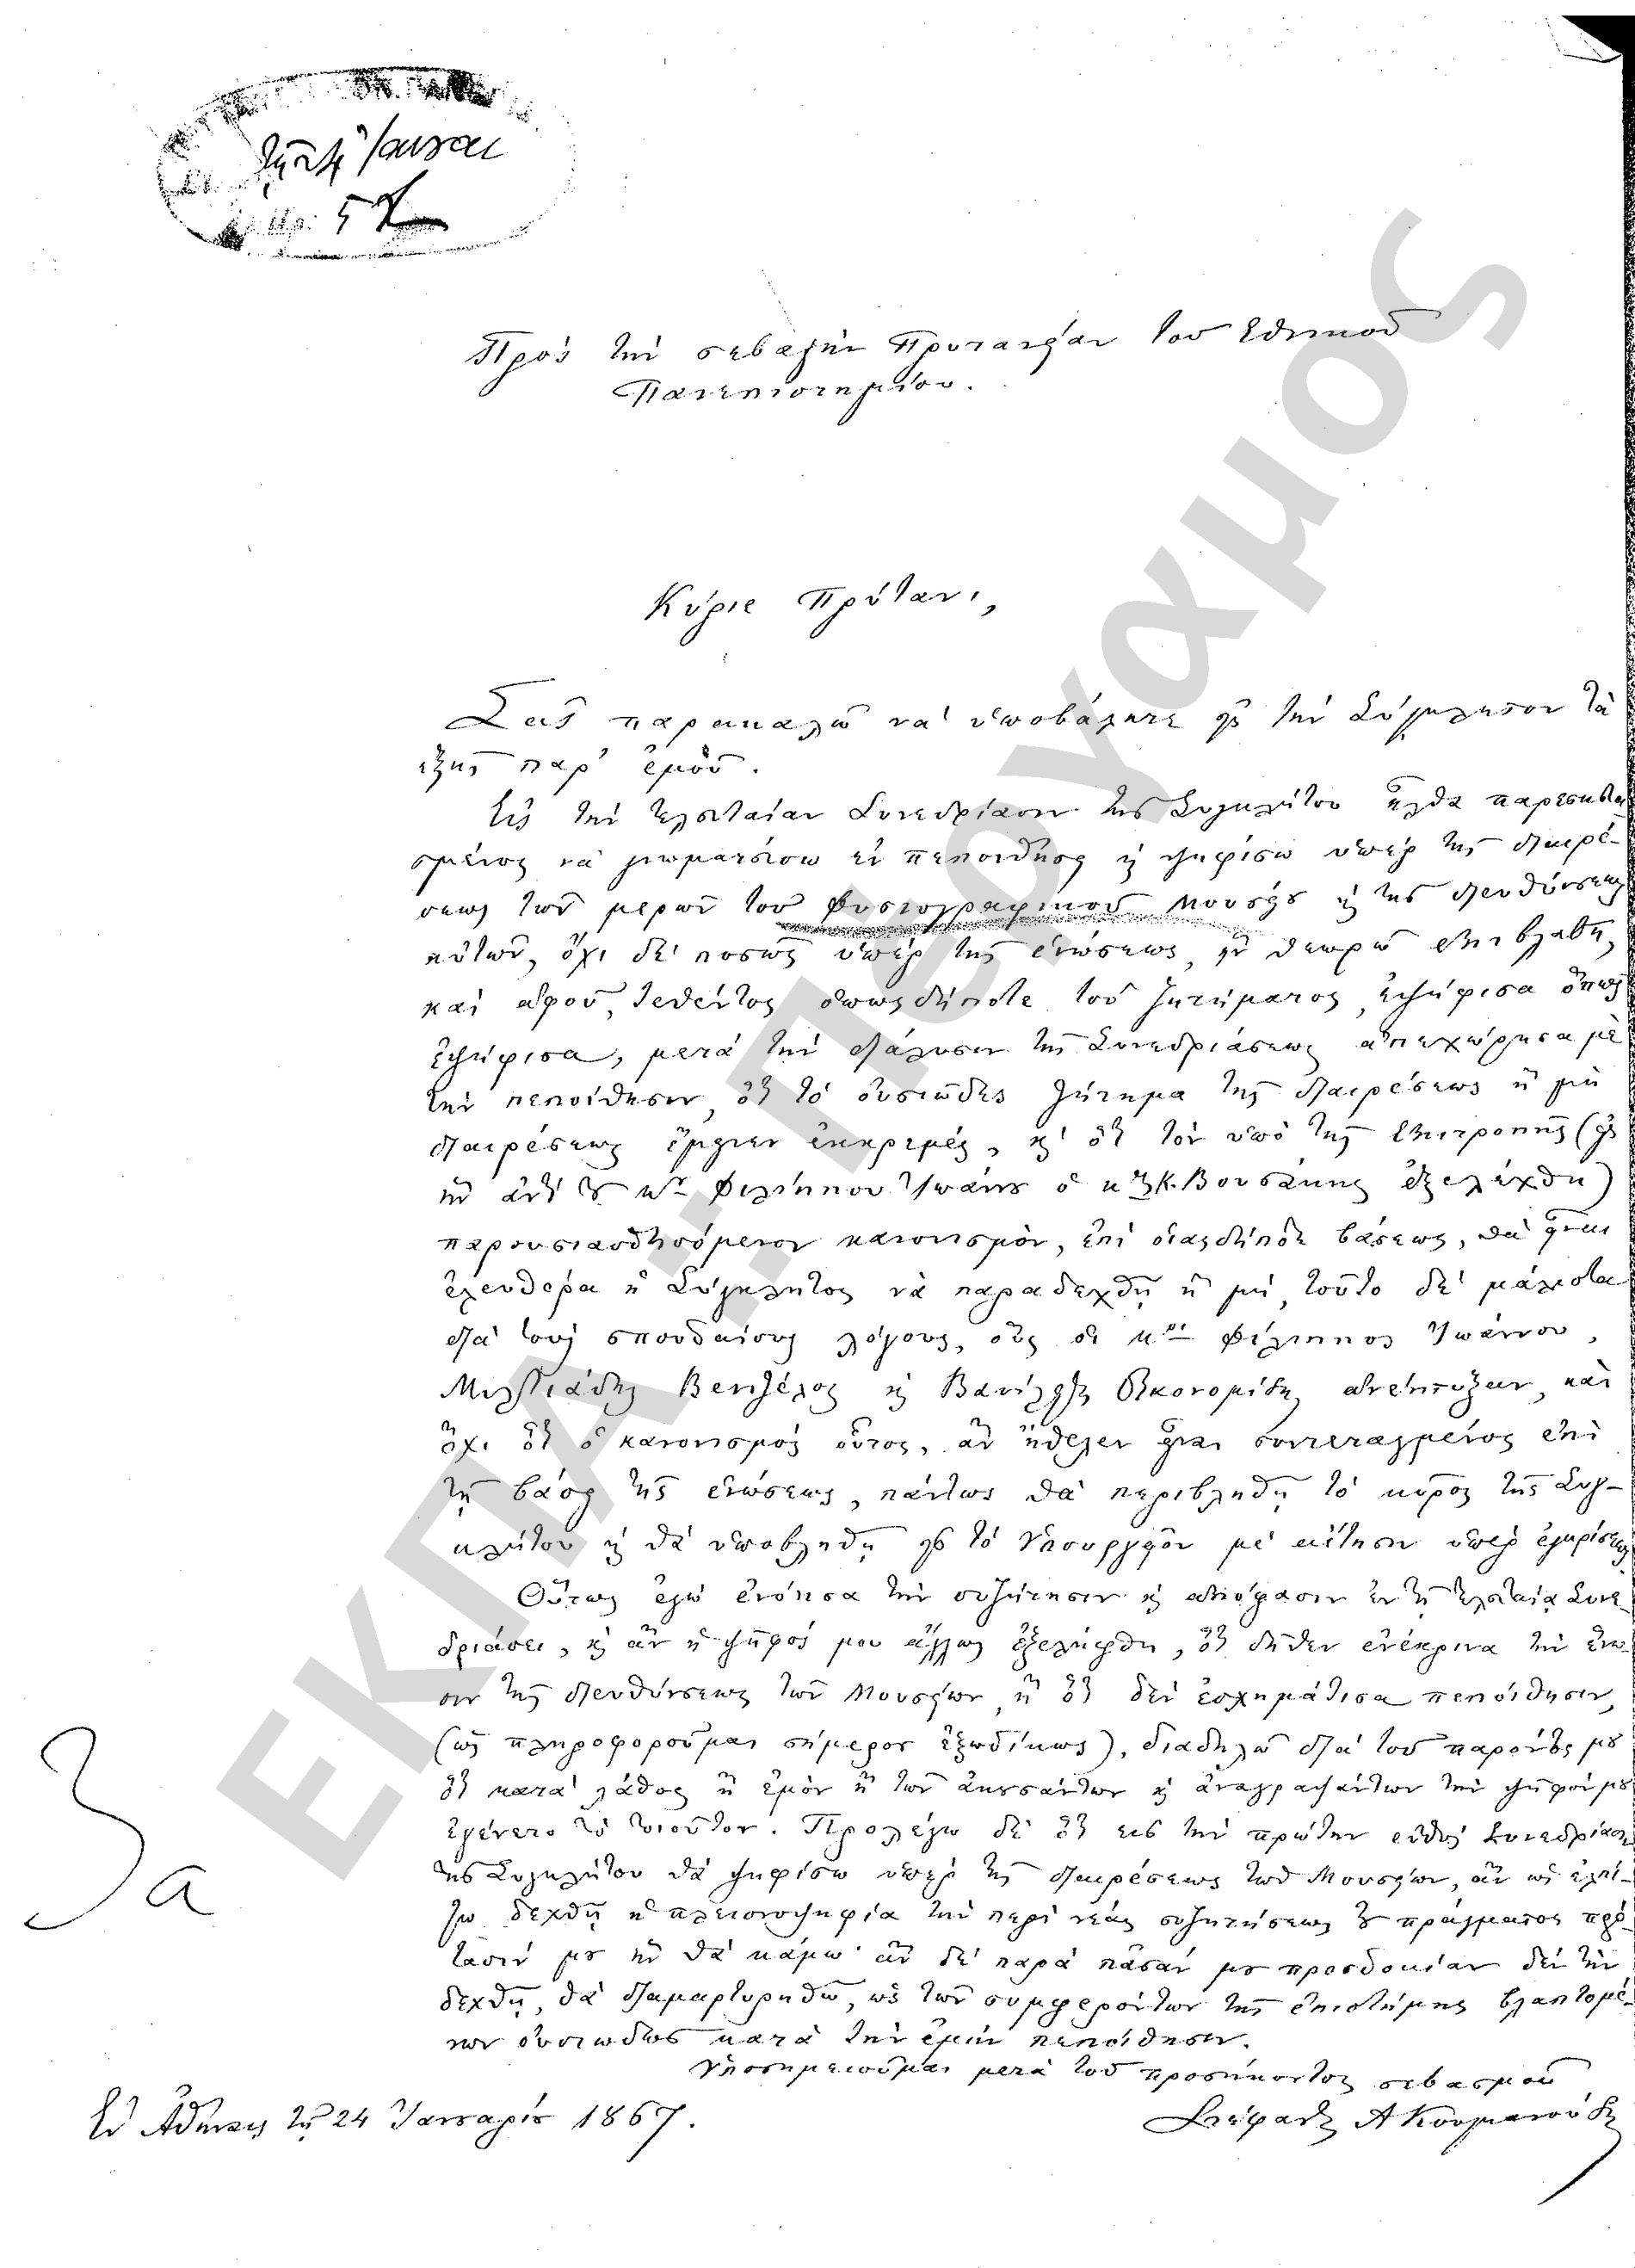 Πρὸς τὴν σεβαστὴν Πρυτανείαν τοῦ Ἐθνικοῦ
Πανεπιστημίου.
Κύριε Πρύτανι,
Σᾶς παρακαλῶ νὰ ὑποβάλητε εἰς τὴν Σύγκλητον τὰ
ἑξῆς παρ' ἐμοῦ.
Εἰς τὴν τελευταίαν Συνεδρίασιν τῆς Συγκλήτου ἦλθα παρεσκευα
σμένος νὰ γνωματεύσω ἐν πεποιθήσει κ ψηφίσω ὑπὲρ τῆς διαιρέ-
σεως τῶν μερῶν τοῦ Φυσιογραφικοῦ Μουσείου κ τῆς διευθύνσεως
αὐτῶν, ὄχι δὲ ποσῶς ὑπὲρ τῆς ἑνώσεως, ἣν θεωρῶ ἐπιβλαβῆ,
καὶ ἀφοῦ, τεθέντος ὁπωςδήποτε τοῦ ζητήματος, ἐψήφισα ὅπως
ἐψήφισα, μετὰ τὴν διάλυσιν τῆς Συνεδριάσεως ἀπεχώρησα μὲ
τὴν πεποίθησιν, ὅτι τὸ οὐσιῶδες ζήτημα τῆς διαιρέσεως ἢ μὴ
διαιρέσεως ἔμεινεν ἐκκρεμές, κ' ὅτι τὸν ὑπὸ τῆς Ἐπιτροπῆς (εἰς
ἣν ἀντὶ τοῦ κου Φιλίππου Ἰωάννου ὁ κος Κ. Βουσάκης ἐξελέχθη)
παρουσιασθησόμενον κανονισμὸν, ἐπὶ οἱαςδήποτε βάσεως, θὰ ἦναι
ἐλευθέρα ἡ Σύγκλητος νὰ παραδεχθῇ ἢ μὴ, τοῦτο δὲ μάλιστα
διὰ τοὺς σπουδαίους λόγους, οὓς οἱ κοι Φίλιππος Ἰωάννου,
Μιλτιάδης Βενιζέλος κ Βασίλειος Οἰκονομίδης ἀνέπτυξαν, καὶ
ὄχι ὅτι ὁ κανονισμὸς οὗτος, ἂν ἤθελεν εἶναι συντεταγμένος ἐπὶ
τῇ βάσει τῆς ἑνώσεως, πάντως θὰ περιβληθῇ τὸ κῦρος τῆς Συγ-
κλήτου κ θὰ ὑποβληθῇ εἰς τὸ Ὑπουργεῖον μὲ αἴτησιν ὑπὲρ ἐγκρίσεως
Οὕτως ἐγὼ ἐνόησα τὴν συζήτησιν κ ἀπόφασιν ἐν τῇ τελευταίᾳ Συνε-
δριάσει, κ ἂν ἡ ψῆφός μου ἄλλως ἐξελήφθη, ὅτι δῆθεν ἐνέκρινα τὴν ἕνω-
σιν τῆς διευθύνσεως τῶν Μουσείων, ἢ ὅτι δὲν ἐσχημάτισα πεποίθησιν,
(ὡς πληροφοροῦμαι σήμερον ἐξωδίκως), διαδηλῶ διὰ τοῦ παρόντος μου
ὅτι κατὰ λάθος ἢ ἐμὸν ἢ τῶν ἀκουσάντων κ ἀναγραψάντων τὴν ψῆφόν μου
ἐγένετο τὸ τοιοῦτον. Προλέγω δὲ ὅτι εἰς τὴν πρώτην εὐθὺς Συνεδρίασιν
τῆς Συγκλήτου θὰ ψηφίσω ὑπὲρ τῆς διαιρέσεως τῶν Μουσείων, ἂν ὡς ἐλπί-
ζω δεχθῇ ἡ πλειονοψηφία τὴν περὶ νέας συζητήσεως τοῦ πράγματος πρό-
τασίν μου ἣν θὰ κάμω· ἂν δὲ παρὰ πᾶσάν μου προσδοκίαν δὲν τὴν
δεχθῇ, θὰ διαμαρτυρηθῶ, ὡς τῶν συμφερόντων τῆς ἐπιστήμης βλαπτομέ-
νων οὐσιωδῶς κατὰ τὴν ἐμὴν πεποίθησιν.
Ὑποσημειοῦμαι μετὰ τοῦ προσήκοντος σεβασμοῦ
Ἐν Ἀθήναις τῇ 24 Ἰανουαρίου 1867.
Στέφανος Α Κουμανούδης
3α
ΕΚΠΑ - Πέργαμος